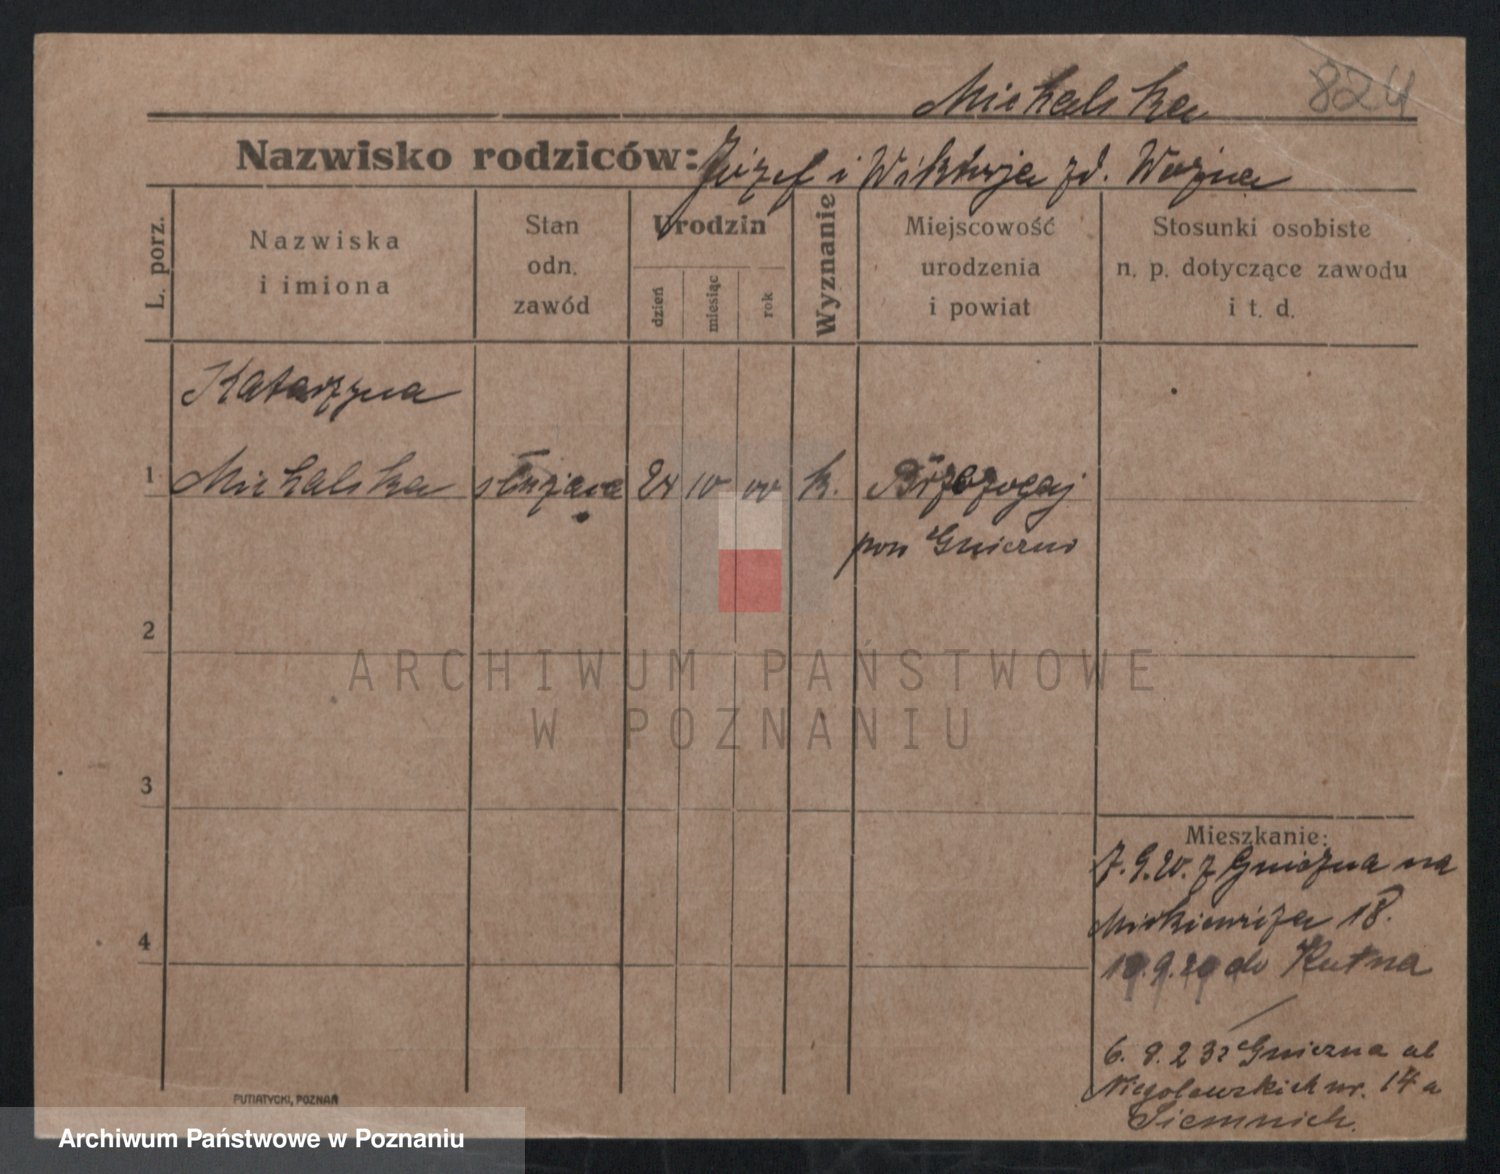 Michalska 824
Nazwisko rodziców: Józef i Wiktorja zd. Woźna
L. porz.
Nazwiska
i imiona
Stan
odn.
zawód
Urodzin
dzień
miesiąc
rok
Wyznanie
Miejscowość
urodzenia
i powiat
Stosunki osobiste
n. p. dotyczące zawodu
i t. d.
Katarzyna
1 Michalska służąca 24 10 00 k. Brzozogaj
pow Gniezno
2
ARCHIWUM PAŃSTWOWE
W POZNANIU
3
Mieszkanie:
7.9.20. z Gniezna na
Mickiewicza 18.
4
19.9.20 do Kutna
6. 8. 23 z Gniezna al
Niegolewskich nr. 14 a
Siemnich.
PUTIATYCKI, POZNAŃ
Archiwum Państwowe w Poznaniu